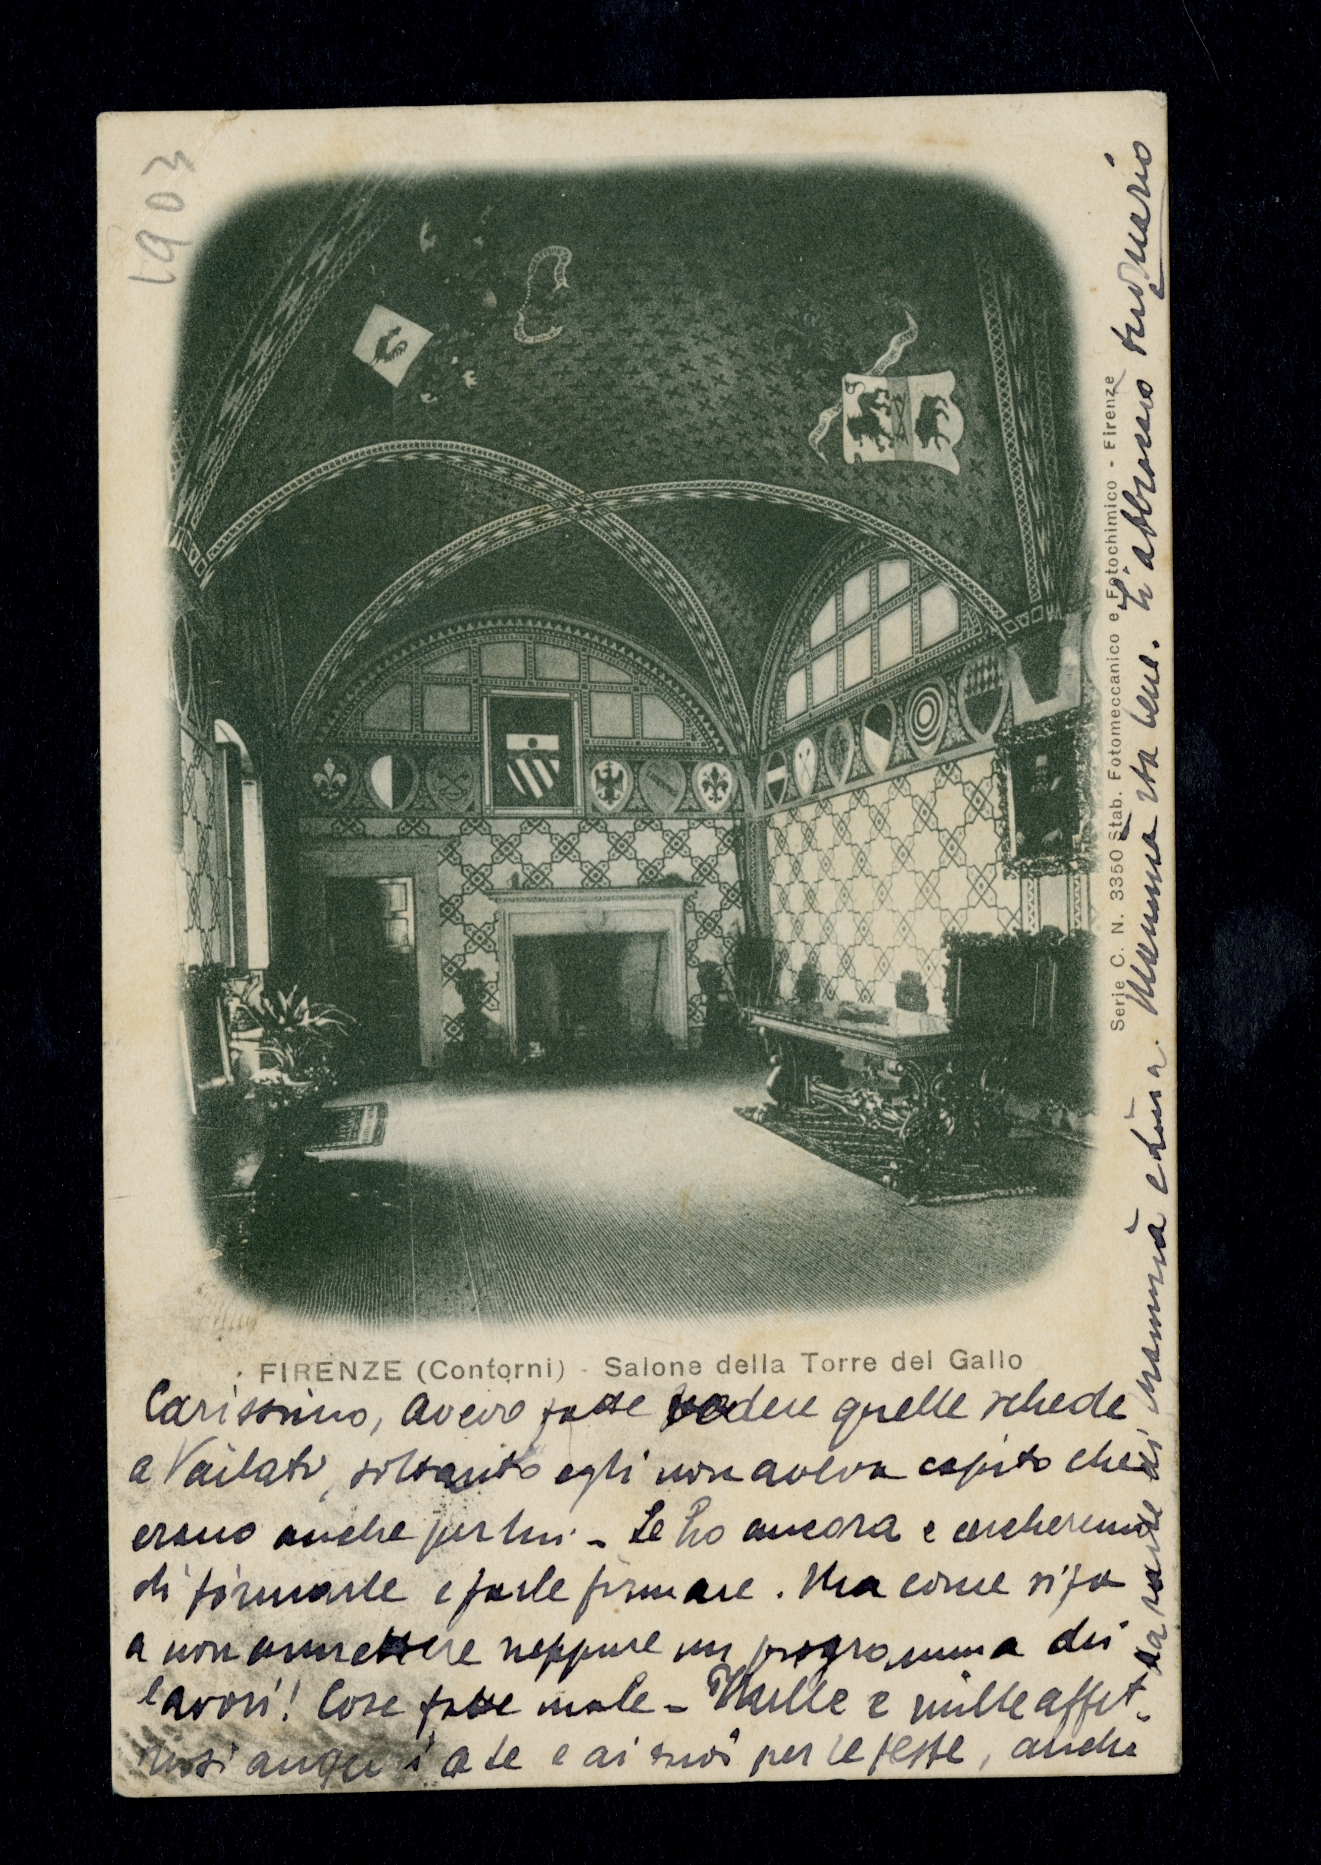 1903
FIRENZE (Contorni) - Salone della Torre del Gallo
Serie C. N. 3350 Stab. Fotomeccanico e Fotochimico - Firenze
Carissimo, avevo fatte vedere quelle schede
a Vailati, soltanto egli non aveva capito che
erano anche per lui. - Le ho ancora e cercheremo
di firmarle e farle firmare. Ma come si fa
a non ammettere neppure un programma dei
lavori! Cose fatte male - Mille e mille affet-
tuosi auguri a te e ai tuoi per le feste, anche
da parte di mamma e Lina. Mamma sta bene. Ti abbraccio tuo Mario